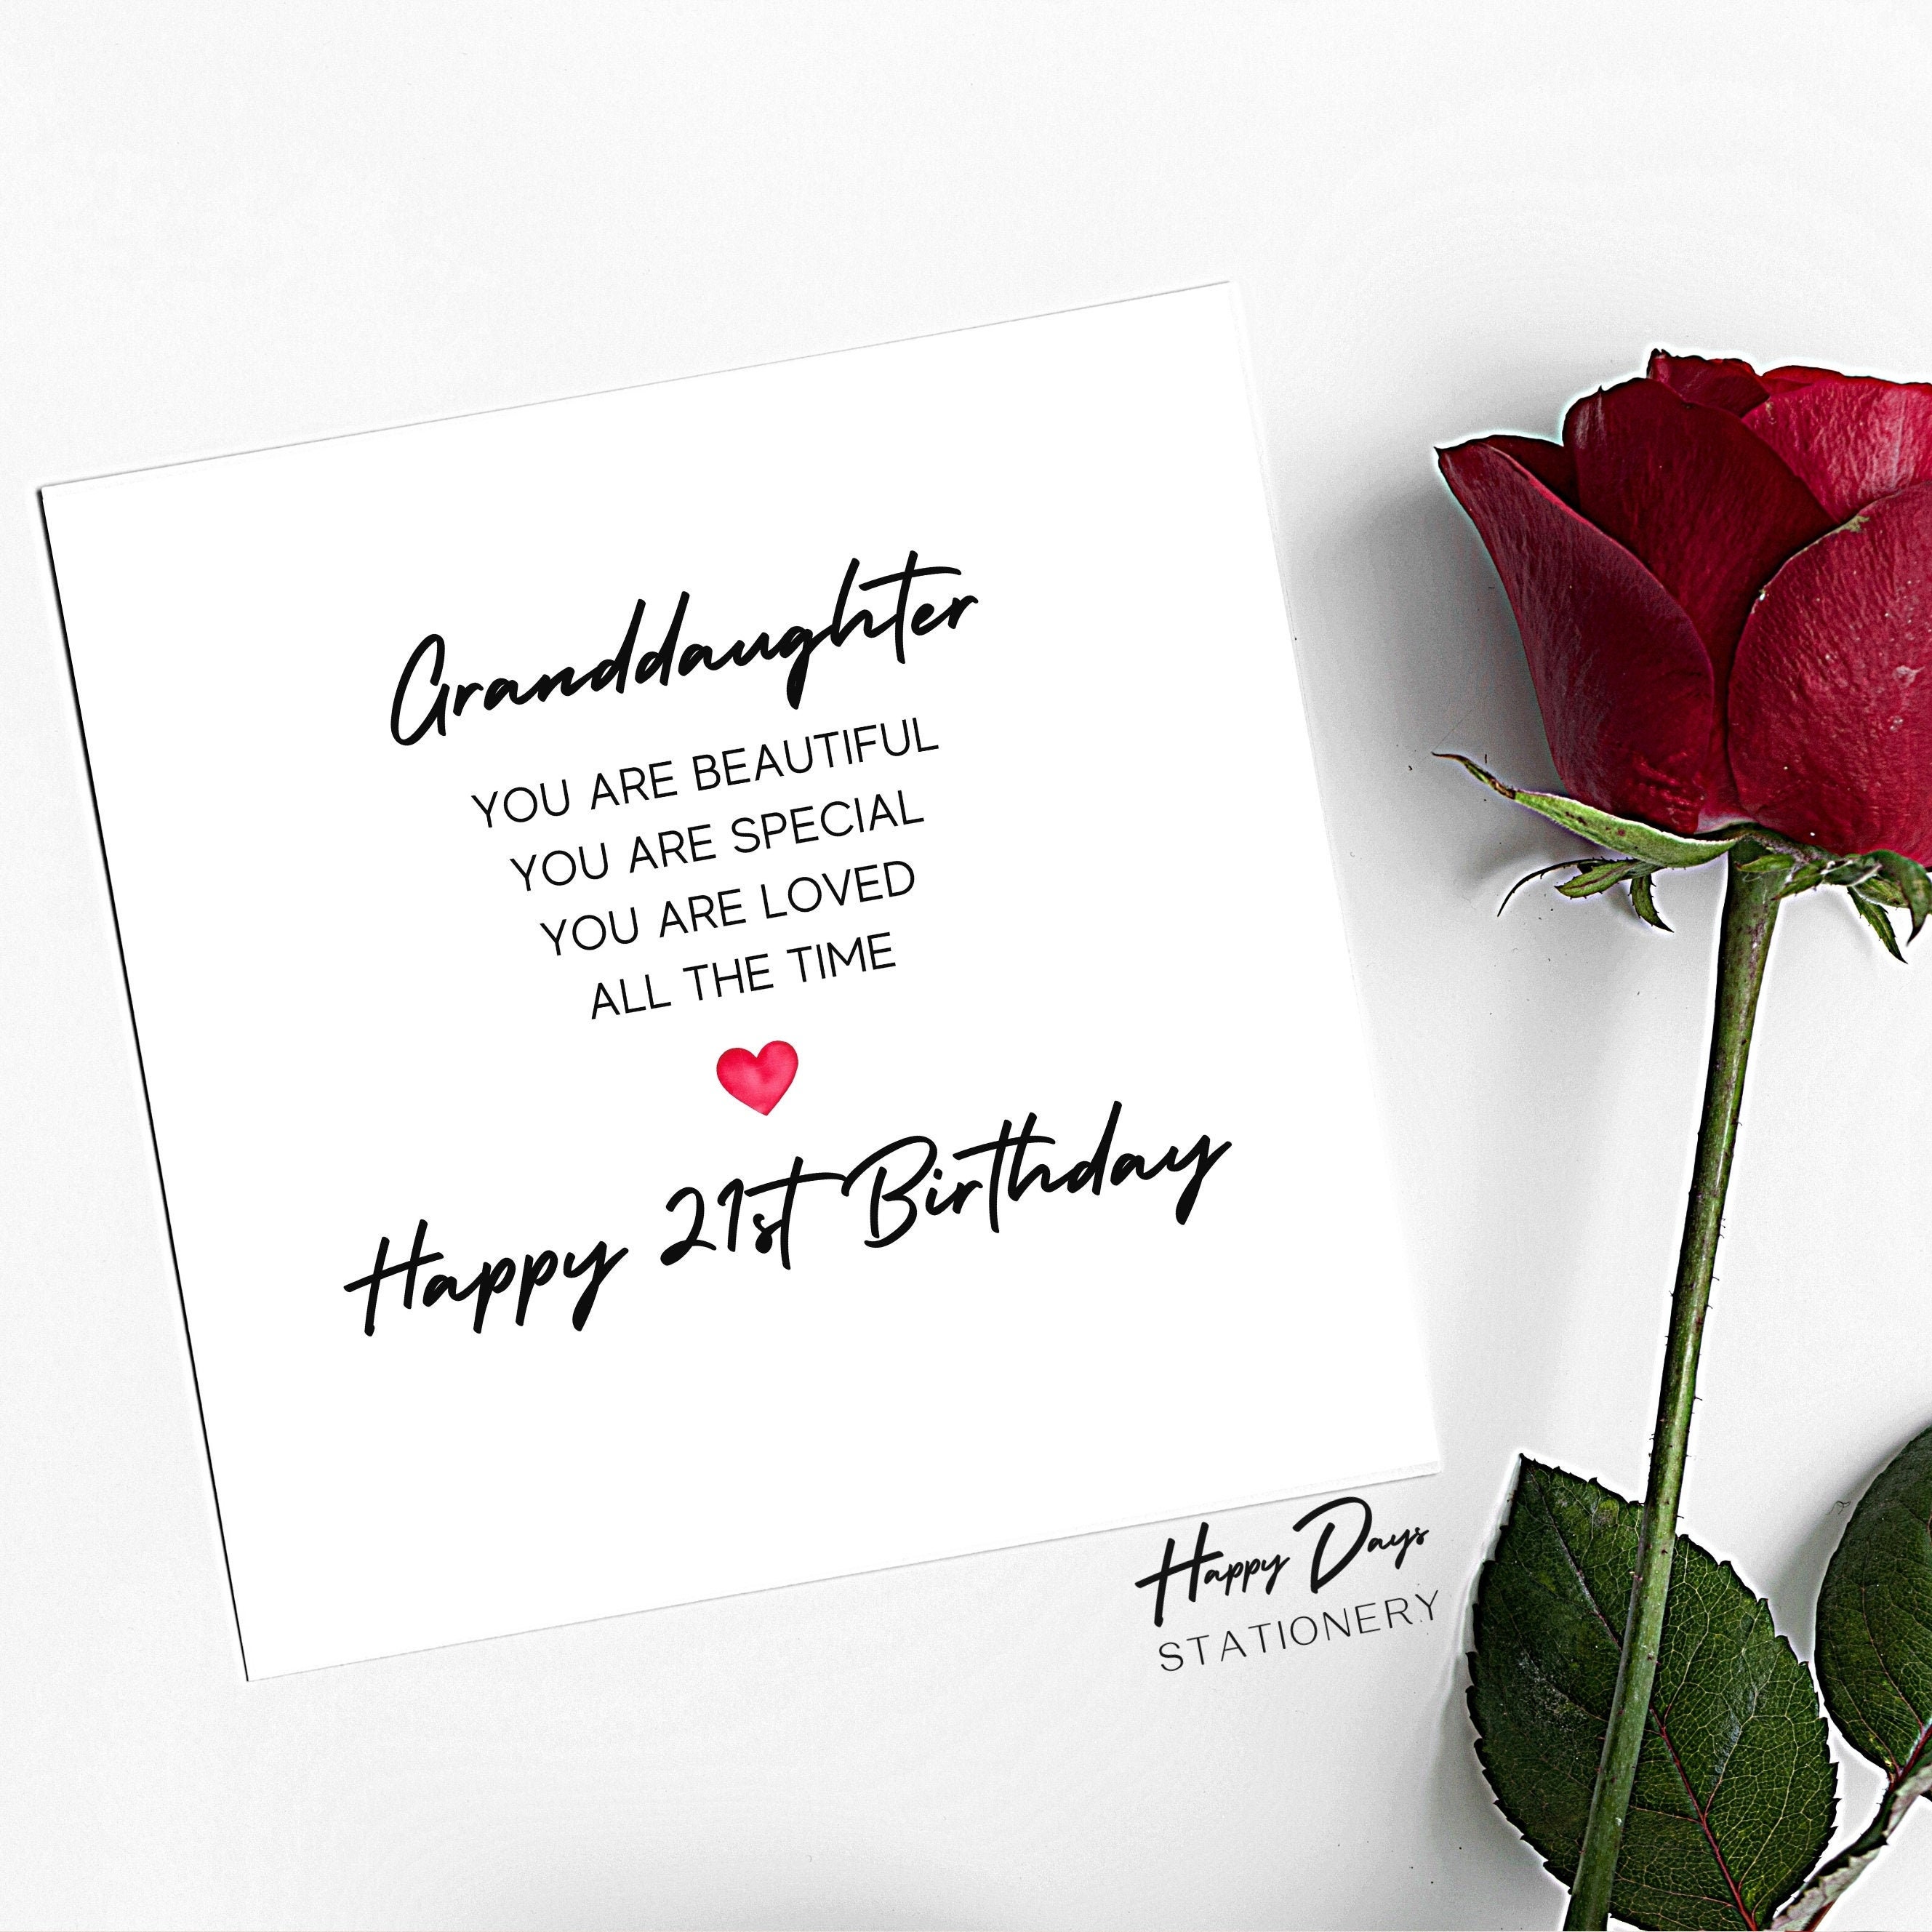 Granddaughter
YOU ARE BEAUTIFUL
YOU ARE SPECIAL
YOU ARE LOVED
ALL THE TIME
Happy 21st Birthday
Happy Days
STATIONERY